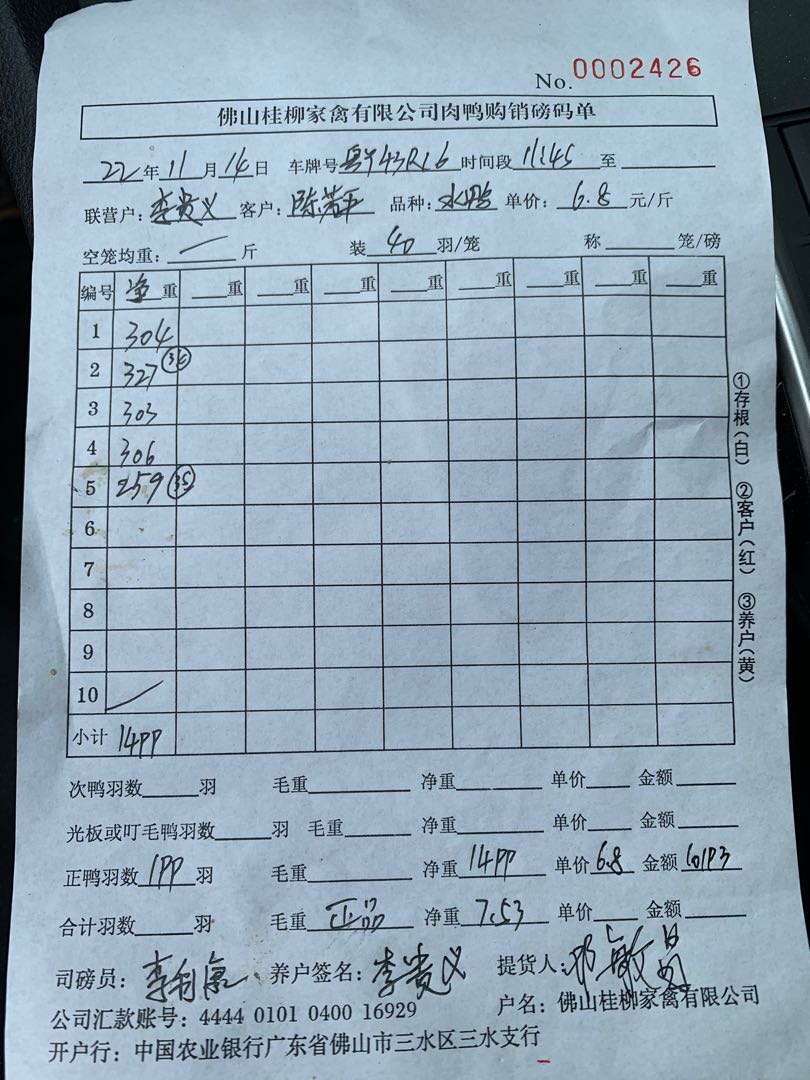 No. 0002426
佛山桂柳家禽有限公司肉鸭购销磅码单
22年11月14日 车牌号粤Y43R16时间段11:45至
联营户:李贵义 客户: 品种:水鸭 单价:6.8元/斤
空笼均重:斤 装40羽/笼 称笼/磅
编号 净重 重 重 重 重 重 重 重 重
1 304
2 327
3 303
4 306
5 259 35
6
7
8
9
10
小计 1499
①存根(白) ②客户(红) ③养户(黄)
次鸭羽数羽 毛重 净重 单价 金额
光板或叮毛鸭羽数羽 毛重 净重 单价 金额
正鸭羽数199羽 毛重 净重1499 单价6.8 金额10193
合计羽数羽 毛重正品 净重7.53 单价 金额
司磅员: 养户签名:李贵义 提货人:
公司汇款账号:4444 0101 0400 16929 户名:佛山桂柳家禽有限公司
开户行:中国农业银行广东省佛山市三水区三水支行